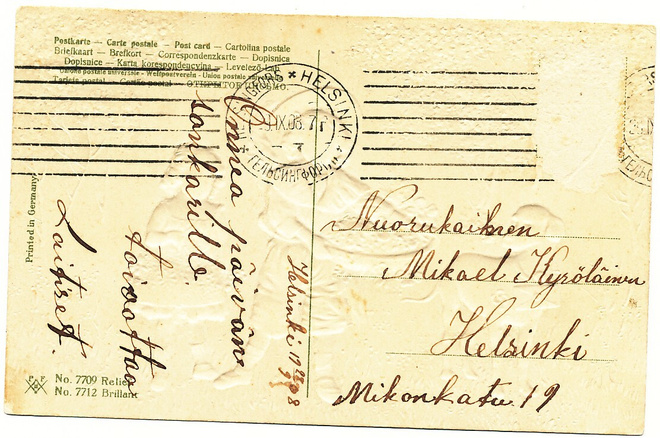 Postkarte — Carte postale — Post card — Cartolina postale
Briefkaart — Brefkort — Correspondenzkarte — Dopisnica
Dopisnice — Karta korespondencyjna — Levelező-Lap
Union postale universelle - Weltpostverein - Unione postale
ОТКРЫТОЕ ПИСЬМО.
HELSINKI
IX.08.7
ГЕЛЬСИНГФОРС
Printed in Germany
Onnea päivän
sankarille
toivottaa
Laitiset.
Helsinki 19 08
Nuorukainen
Mikael Kyröläinen
Helsinki
Mikonkatu. 19
No. 7709 Relief
No. 7712 Brillant